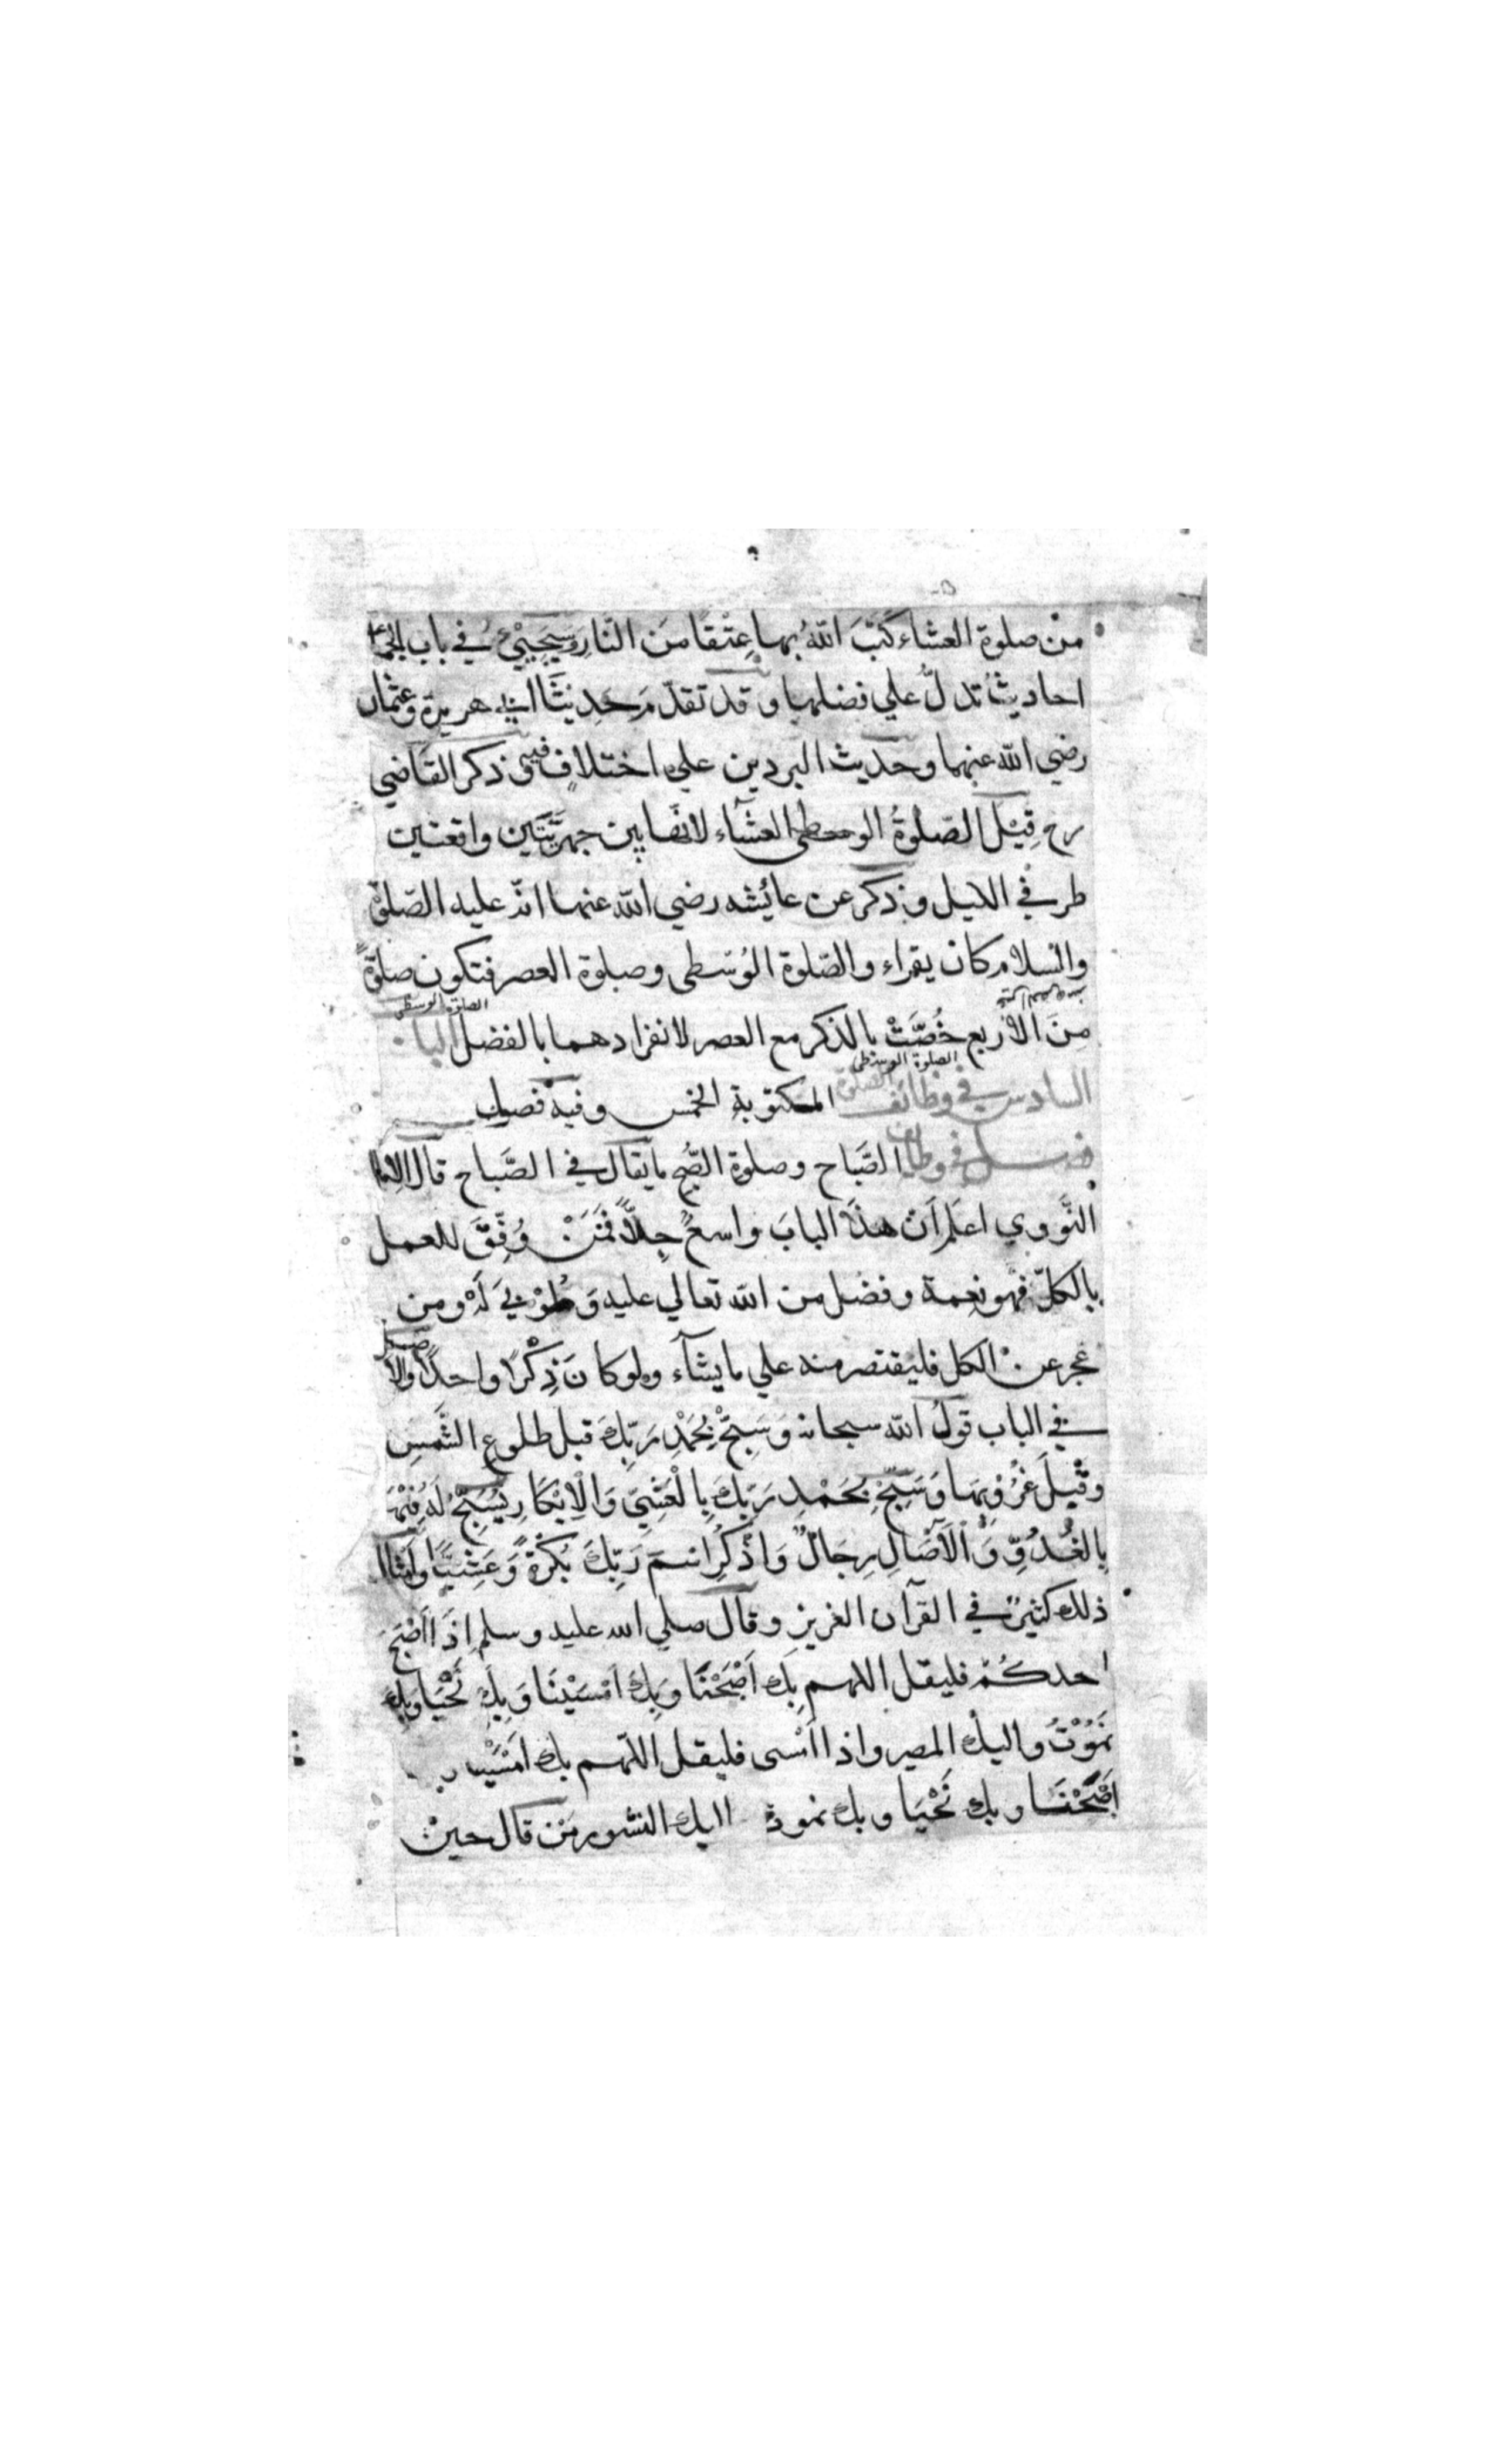 من صلوة العشاء كَتَبَ اللّهُ بها عِتْقًا مِنَ النَّارِ وَسَيَجِيْئُ في باب الجماعة
احاديثُ تدلُّ علي فضلها وقد تقدّمَ حَدِيْثَا ابي هريرة وعثمان
رضي الله عنهما وحديث البردين علي اختلافٍ فيه وذكر القاضي
رح قِيْلَ الصّلوةُ الوسطى العشآء لانّها بين جهريّتَين واقعتين
طرفي الليل وذكر عن عائشه رضي الله عنها انّه عليه الصّلوة
والسلام كان يقراء والصّلوة الوُسْطى وصلوة العصر فتكون صلوةً
مِنَ الأربع خُصَّتْ بالذكر مع العصر لانفرادهما بالفضل الباب
الصلوة الوسطى
الصلوة الوسطى
السادس في وظائف الصلوة المكتوبة الخمس وفيه فصول
فصل في وظائف الصَّباح وصلوة الصُّبح ما يقال في الصَّباح قال الامام
النَّووي اعلم اَن هذَا البابَ واسعٌ جِدًّا فَمَنْ وُفِّقَ للعمل
بالكلّ فهو نِعمة وفضل من الله تعالي عليه وَطُوْبيٰ لَهُ ومن
عجز عن الكل فليقتصر منه علي ما يشآء ولو كانَ ذِكْرًا واحدًا والاصل
في الباب قولُ الله سبحانه وَسَبِّحْ بِحَمْدِ رَبِّكَ قبل طلوع الشَّمسِ
وقَبْلَ غُرُوبِهَا وَسَبِّحْ بِحَمْدِ رَبِّكَ بِالْعَشِيِّ وَالْاِبْكَارِ يُسَبِّحُ لَهُ فِيْهَا
بِالْغُدُوِّ وَالْآصَالِ رِجَالٌ وَاذْكُرِ اسمَ رَبِّكَ بُكْرَةً وَعَشِيًّا وَامثال
ذلك كثيرٌ في القرآن العزيز وقال صلي الله عليه وسلم اِذَا اَصْبَحَ
احدكُمْ فليقل اللهم بِكَ اَصْبَحْنَا وَبِكَ اَمْسَيْنَا وَبِكَ نَحْيَا وَبِكَ
نَمُوْتُ واليك المصير واذا اَمْسى فليقل اللّهم بك اَمْسَيْنا وبك
اَصْبَحْنَا وبك نَحْيَا وبك نموت واليك النشور مَن قال حينَ